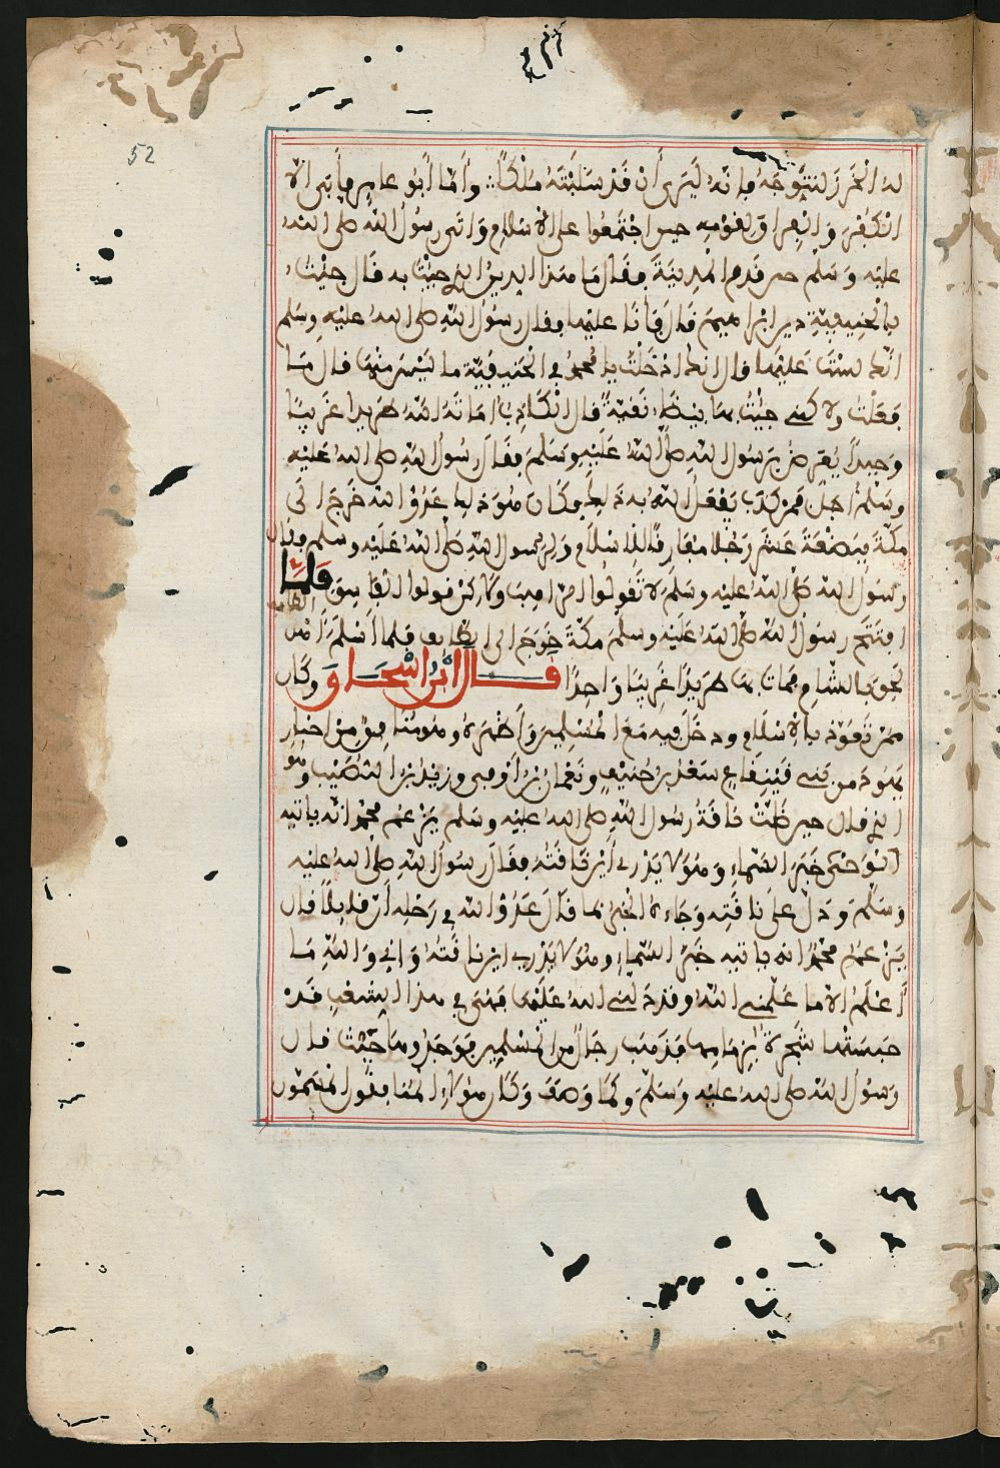 52
له الخرز ليتوجه فإنه ليرى أن قد سلبته ملكا وأما أبو عامر فأبى الا
الكفر والفراق لقومه حين اجتمعوا على الاسلام وأتى رسول الله صلى الله
عليه وسلم حين قدم المدينة فقال ما هذا الدين الذي جئت به قال جئت
بالحنيفية دين ابراهيم قال فأنا عليها فقال رسول الله صلى الله عليه وسلم
انك لست عليها قال انك ادخلت يا محمد في الحنيفية ما ليس منها قال ما
فعلت ولاكني جئت بها بيضاء نقية قال الكاذب اماته الله طريدا غريبا
وحيدا يعرض برسول الله صلى الله عليه وسلم فقال رسول الله صلى الله عليه
وسلم اجل فمن كذب يفعل الله به ذلك فكان هو ذلك عدو الله خرج الى
مكة ببضعة عشر رجلا مفارقا للاسلام ولرسول الله صلى الله عليه وسلم فقال
رسول الله صلى الله عليه وسلم لا تقولوا الراهب ولاكن قولوا الفاسق فلما
افتتح رسول الله صلى الله عليه وسلم مكة خرج الى الطايف فلما اسلم اهل
الطايف
لحق بالشام فمات بها طريدا غريبا وحيدا قال ابن اسحاق وكان
ممن تعوذ بالاسلام ودخل فيه مع المسلمين وأظهره وهو منافق من احبار
يهود من بني قينقاع سعد بن حنيف ونعمان بن أوفى وزيد بن اللصيت وهو
الذي قال حين ضلت ناقة رسول الله صلى الله عليه وسلم يزعم محمد انه ياتيه
خبر السماء وهو لا يدري أين ناقته فقال رسول الله صلى الله عليه
وسلم ودل على ناقته وجاءه الخبر بما قال عدو الله في رحله ان قايلا قال
يزعم محمد انه ياتيه خبر السماء وهو لا يدري اين ناقته واني والله ما
أعلم الا ما علمني الله وقد دلني الله عليها فهي في هذا الشعب قد
حبستها شجرة بزمامها فذهب رجال من المسلمين فوجدوها حيث قال
رسول الله صلى الله عليه وسلم وكما وصف وكان هؤلاء المنافقون المسمون